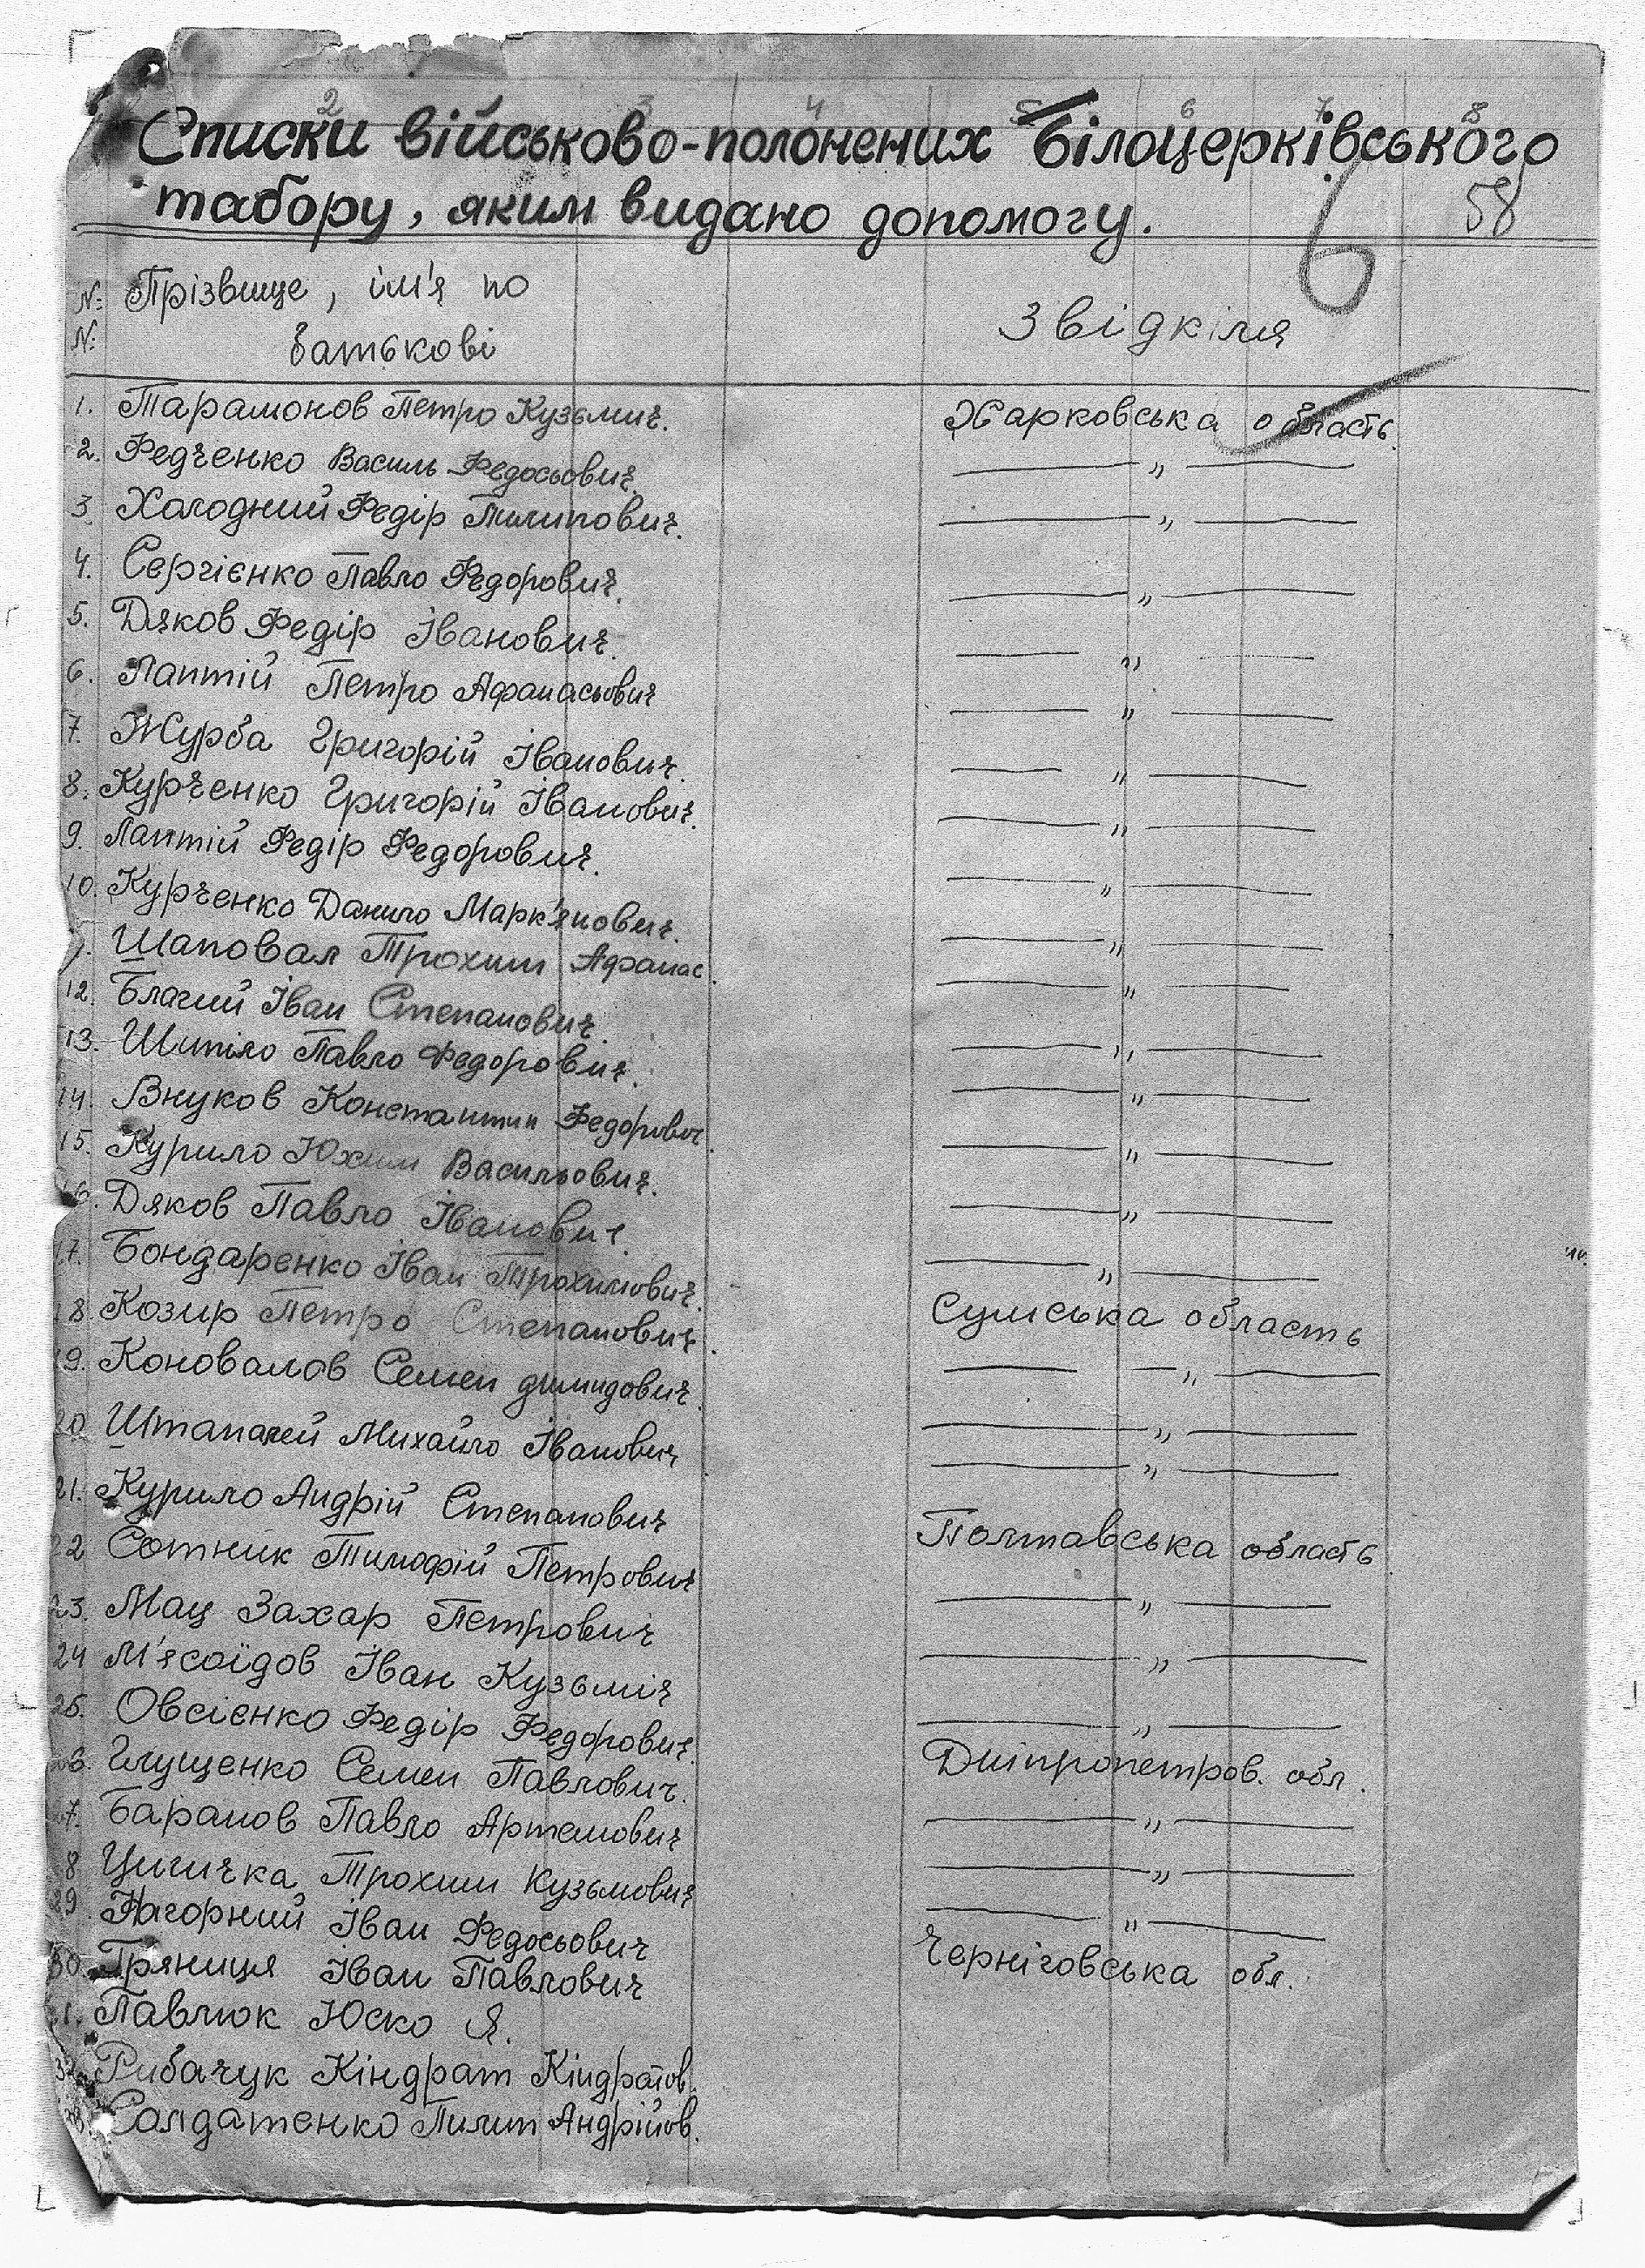 2 3 4 5 6 7 8
Списки військово-полонених Білоцерківського
табору, яким видано допомогу. 6 58
№ № Прізвище, ім'я по
батькові
Звідкіля
1. Парамонов Петро Кузьмич. Харковська область
2. Федченко Василь Федосьович. —„—
3. Холодний Федір Пилипович. —„—
4. Сергієнко Павло Федорович. —„—
5. Дяков Федір Іванович. —„—
6. Лаптій Петро Афанасьович —„—
7. Журба Григорій Іванович. —„—
8. Курченко Григорій Іванович. —„—
9. Лаптій Федір Федорович. —„—
10. Курченко Данило Марк'янович. —„—
Шаповал Трохим Афанас. —„—
12. Благий Іван Степанович. —„—
13. Шипіло Павло Федорович. —„—
14. Внуков Константин Федорович —„—
15. Курило Юхим Васильович. —„—
6. Дяков Павло Іванович. —„—
17. Бондаренко Іван Трохимович. —„—
18. Козир Петро Степанович. Сумська область
19. Коновалов Семен Димидович. —„—
20 Михайло Іванович —„—
21. Курило Андрій Степанович —„—
22 Сотник Тимофій Петрович Полтавська область
23. Мац Захар Петрович —„—
24 М'ясоїдов Іван Кузьміч —„—
25. Овсієнко Федір Федорович. —„—
26. Глущенко Семен Павлович. Дніпропетров. обл.
7. Баранов Павло Артемович —„—
8 Цигичка Трохим Кузьмович —„—
29. Нагорний Іван Федосьович —„—
30. Гряниця Іван Павлович Черніговська обл.
1. Павлюк Юско Я.
32 Рибачук Кіндрат Кіндратов.
Солдатенко Пилип Андрійов.